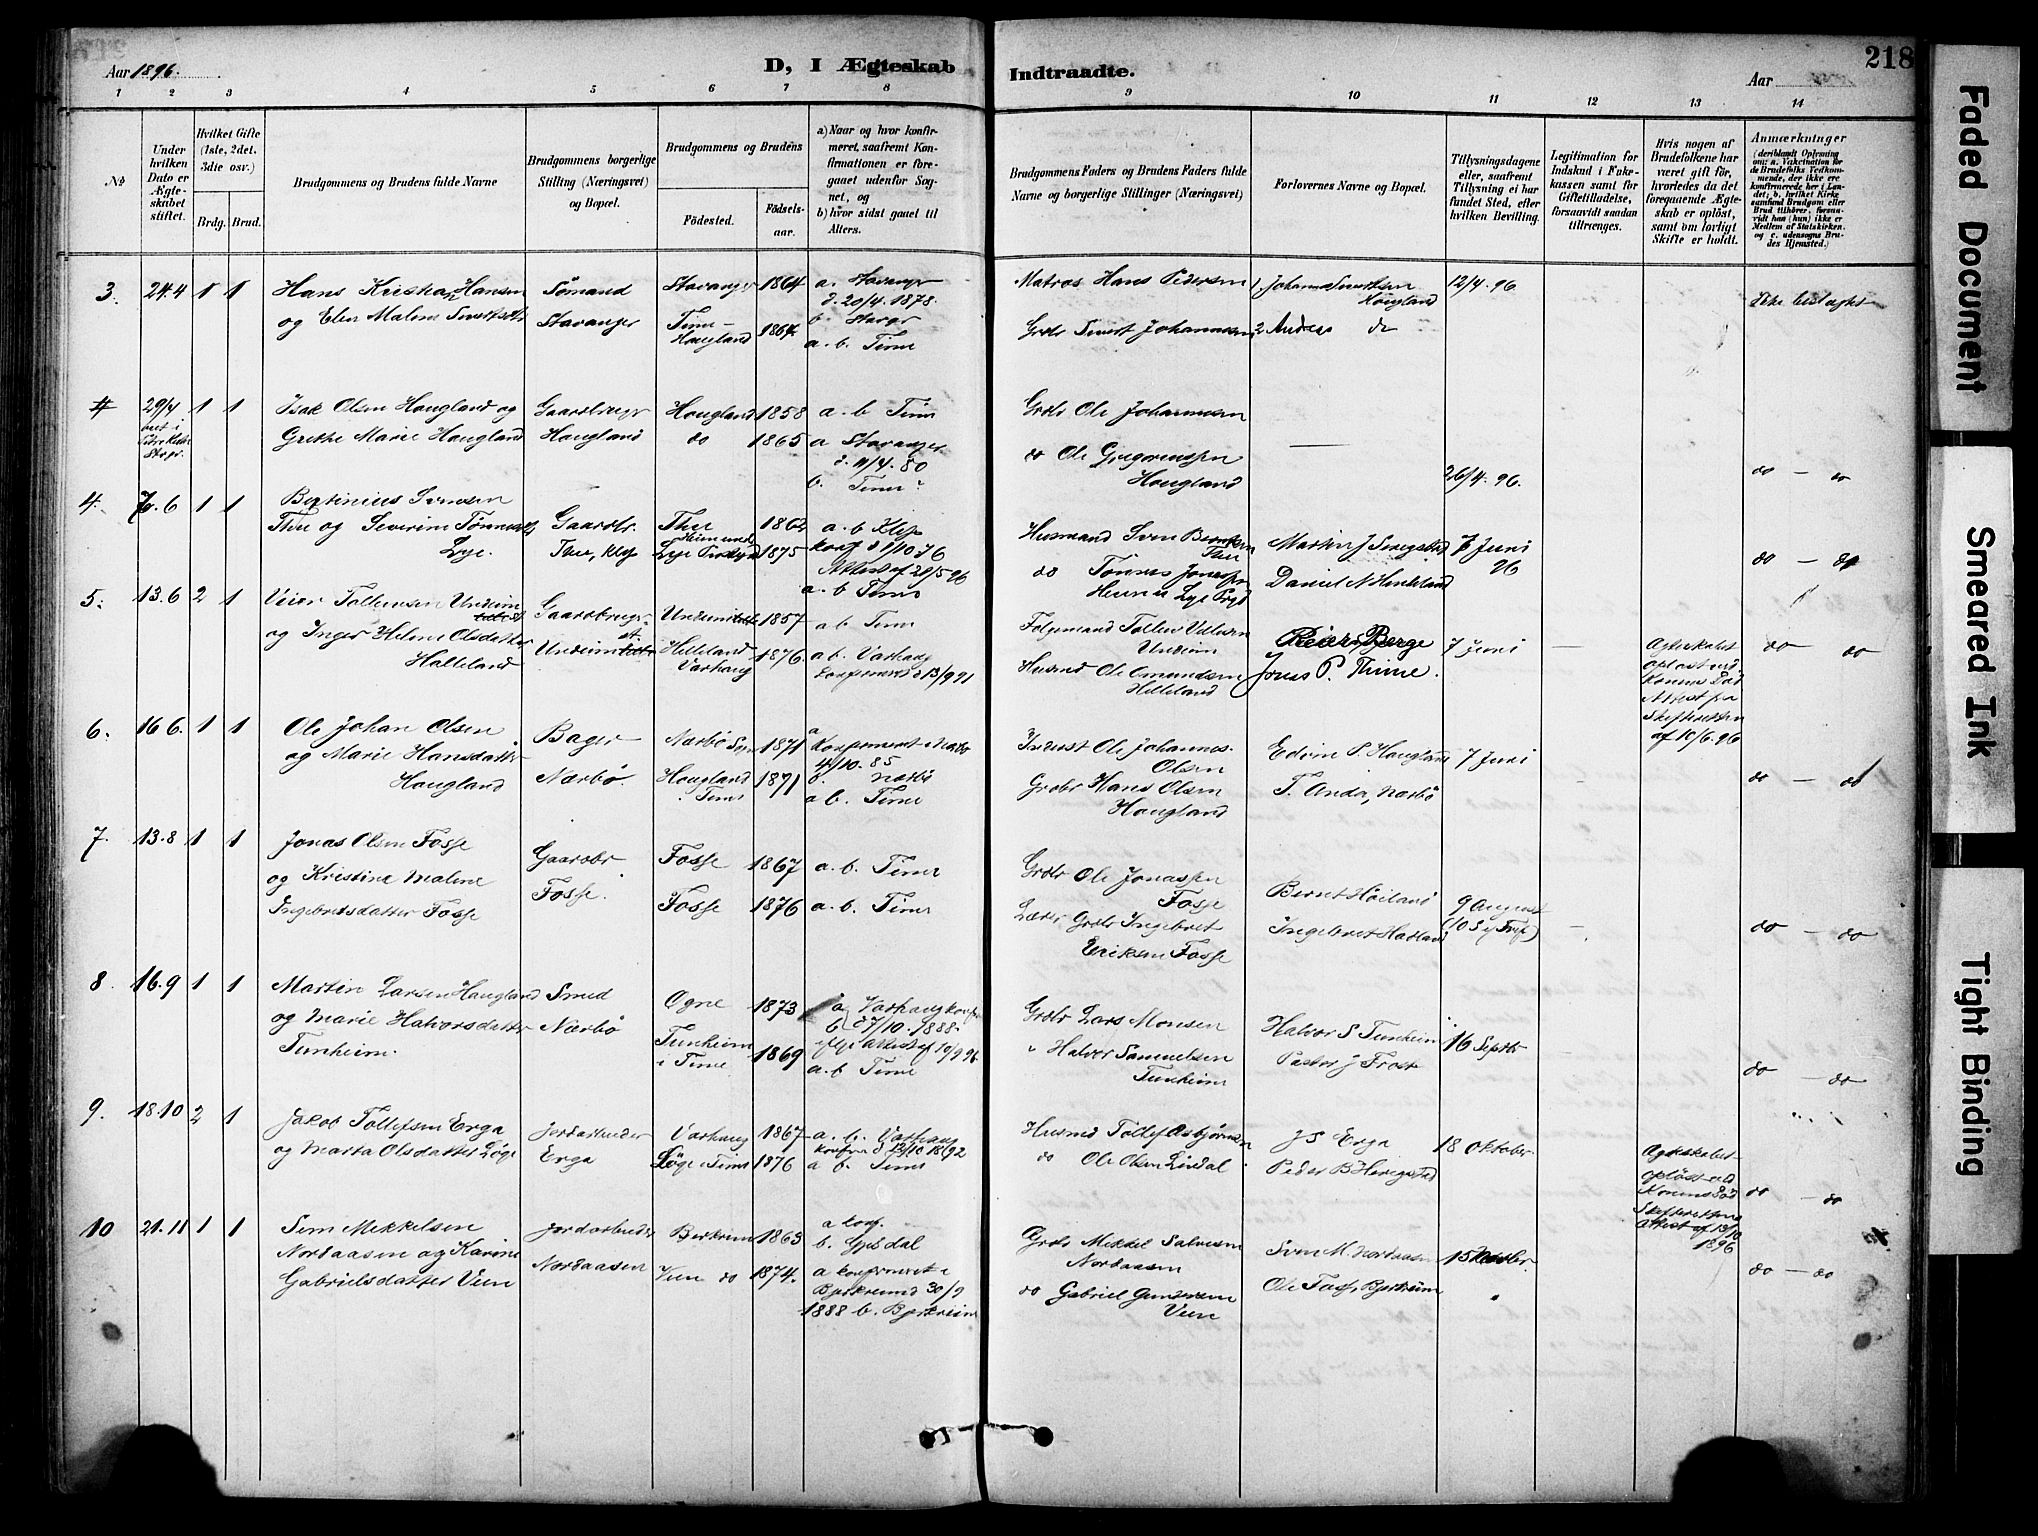 Aar 1896.
D, I Ægteskab
Indtraadte.
Aar
218
1 2 3 4 5 6 7 8 9 10 11 12 13 14
No
Under hvilken Dato er Ægteskabet stiftet.
Hvilket Gifte (1ste, 2det, 3die osv.)
Brdg. Brud.
Brudgommens og Brudens fulde Navne
Brudgommens borgerlige Stilling (Næringsvei) og Bopæl.
Brudgommens og Brudens
Födested.
Födselsaar.
a) Naar og hvor konfirmeret, saafremt Konfirmationen er foregaaet udenfor Sognet, og
b) hvor sidst gaaet til Alters.
Brudgommens Faders og Brudens Faders fulde Navne og borgerlige Stillinger (Næringsvei)
Forlovernes Navne og Bopæl.
Tillysningsdagene eller, saafremt Tillysning ei har fundet Sted, efter hvilken Bevilling.
Legitimation for Indskud i Enkekassen samt for Giftetilladelse, forsaavidt saadan tiltrænges.
Hvis nogen af Brudefolkene har været gift för, hvorledes da det foregaaende Ægteskab er oplöst, samt om lovligt Skifte er holdt.
Anmærkninger
(deriblandt Oplysning om: a. Vakcination for de Brudefolks Vedkommende, der ikke ere konfirmerede her i Landet; b. hvilket Kirkesamfund Brudgom eller Brud tilhörer, forsaavidt han (hun) ikke er Medlem af Statskirken, og c. udensogns Brudes Hjemsted.)
3. 24.4 1 1 Hans Kristian Hansen Sömand Stavanger 1864 a. Stavanger
d. 20/4. 1878.
og Elen Malene Sivertsdtr Stavanger Time- Haugland 1864 b. Stavgr
a. b. Time
Matros Hans Pedersen 1. Johannes Sivertsen Haugland 12/4. 96 Ikke beslægtet
Grdbr Sivert Johannesen 2 Andreas do
4 29/4 1 1 Isak Olsen Haugland og Gaardbruger Haugland 1858 a. b Time
Grethe Marie Haugland Haugland do 1865 a Stavanger
d. 11/4. 80
b. Time
Grdbr Ole Johannesen
do Ole Gregoriussen Haugland — 26/4. 96. do — do
4. 7.6 1 1 Bertinius Svensen
Thu og Severine Tönnesdtr Gaardbr. Thu 1862 a. b Klep
Lye. Thu, Klep Lye 1875 konf d 1/10 76
Attest af 29/5 96
a. b Time
Husmand Sven Thu Martin J Serigstad 7 Juni 96
do Tönnes Jonassen Daniel N Hinkeland do — do
5. 13.6 2 1 Veier Tollevsen Undeim Gaardbruger Undeim 1857 a b Time
og Inger Helene Olsdatter Undeim Helleland Varhaug 1876 a b. Varhaug
Halleland Konfirmeret d 13/9 91
Folgemand Tollev Undeim Reiers Berge 7 Juni —
Husmd Ole Omundsen Helleland Jonas P. Thime.
Ægteskabet oplöst ved Konens Död Attest fra Skifteretten af 10/6. 96 do — do
6. 16 6. 1 1 Ole Johan Olsen Bager Nærbö Sogn 1871 a
Konfirmeret i Nærbö
4/10. 85
og Marie Hansdatter Nærbö. Haugland i Time 1871 b. Nærbö
Haugland a b. Time
Inderst Ole Johannes Olsen Edvin P. Haugland 7 Juni
Grdbr Hans Olsen Haugland T. Anda, Nærbö do — do
7. 13.8 1 1 Jonas Olsen Fosse Gaardbr Fosse 1867 a. b. Time
og Kristine Malene Fosse. Fosse 1876 a. b. Time
Ingebretsdatter Fosse
Grdbr Ole Jonassen Fosse Bernt Höiland 9 August
Lærer Grdbr Ingebret Eriksen Fosse Ingebret Hatland (10 S. ef. Trif.) — do — do
8. 16.9 1 1 Martin Larsen Haugland Smed Ogne 1873 a Varhaug konf
og Marie Halvorsdatter Nærbö b d 7/10. 1888.
Tunheim. Tunheim i Time 1869 Attest af 10/9 96
a. b Time
Grdbr Lars Monsen Halvor S Tunheim 16 Septbr
" Halvor Samuelsen Tunheim Pastor J Frost do — do
9. 18.10 2 1 Jakob Tollefsen Erga Jordarbeider Varhaug 1867 a. b. Varhaug
og Marta Olsdatter Löge Erga Löge i Time 1876 a b. Time
Husmd Tollef Asbjörnsen J S Erga 18 Oktober
do Ole Olsen Lindal Peder B Herigstad
Ægteskabet oplöst ved Konens Död Skifterettens Attest af 13/10 1896 do — do
10 21.11 1 1 Sem Mikkelsen Jordarbeider Berkrem 1863 a konf.
b. Gjesdal
Nordaasen og Karine Nordaasen Veen do 1874. a konfirmeret i
Gabrielsdatter Veen Bjerkreimd 30/9
1888 b. Bjerkreim
Grdbr Mikkel Salvesen Nordaasen Sven M. Nordaasen 15 Novbr.
do Gabriel Gundersen Veen Ole Foss, Bjerkreim " do — do
Faded Document
Smeared Ink
Tight Binding